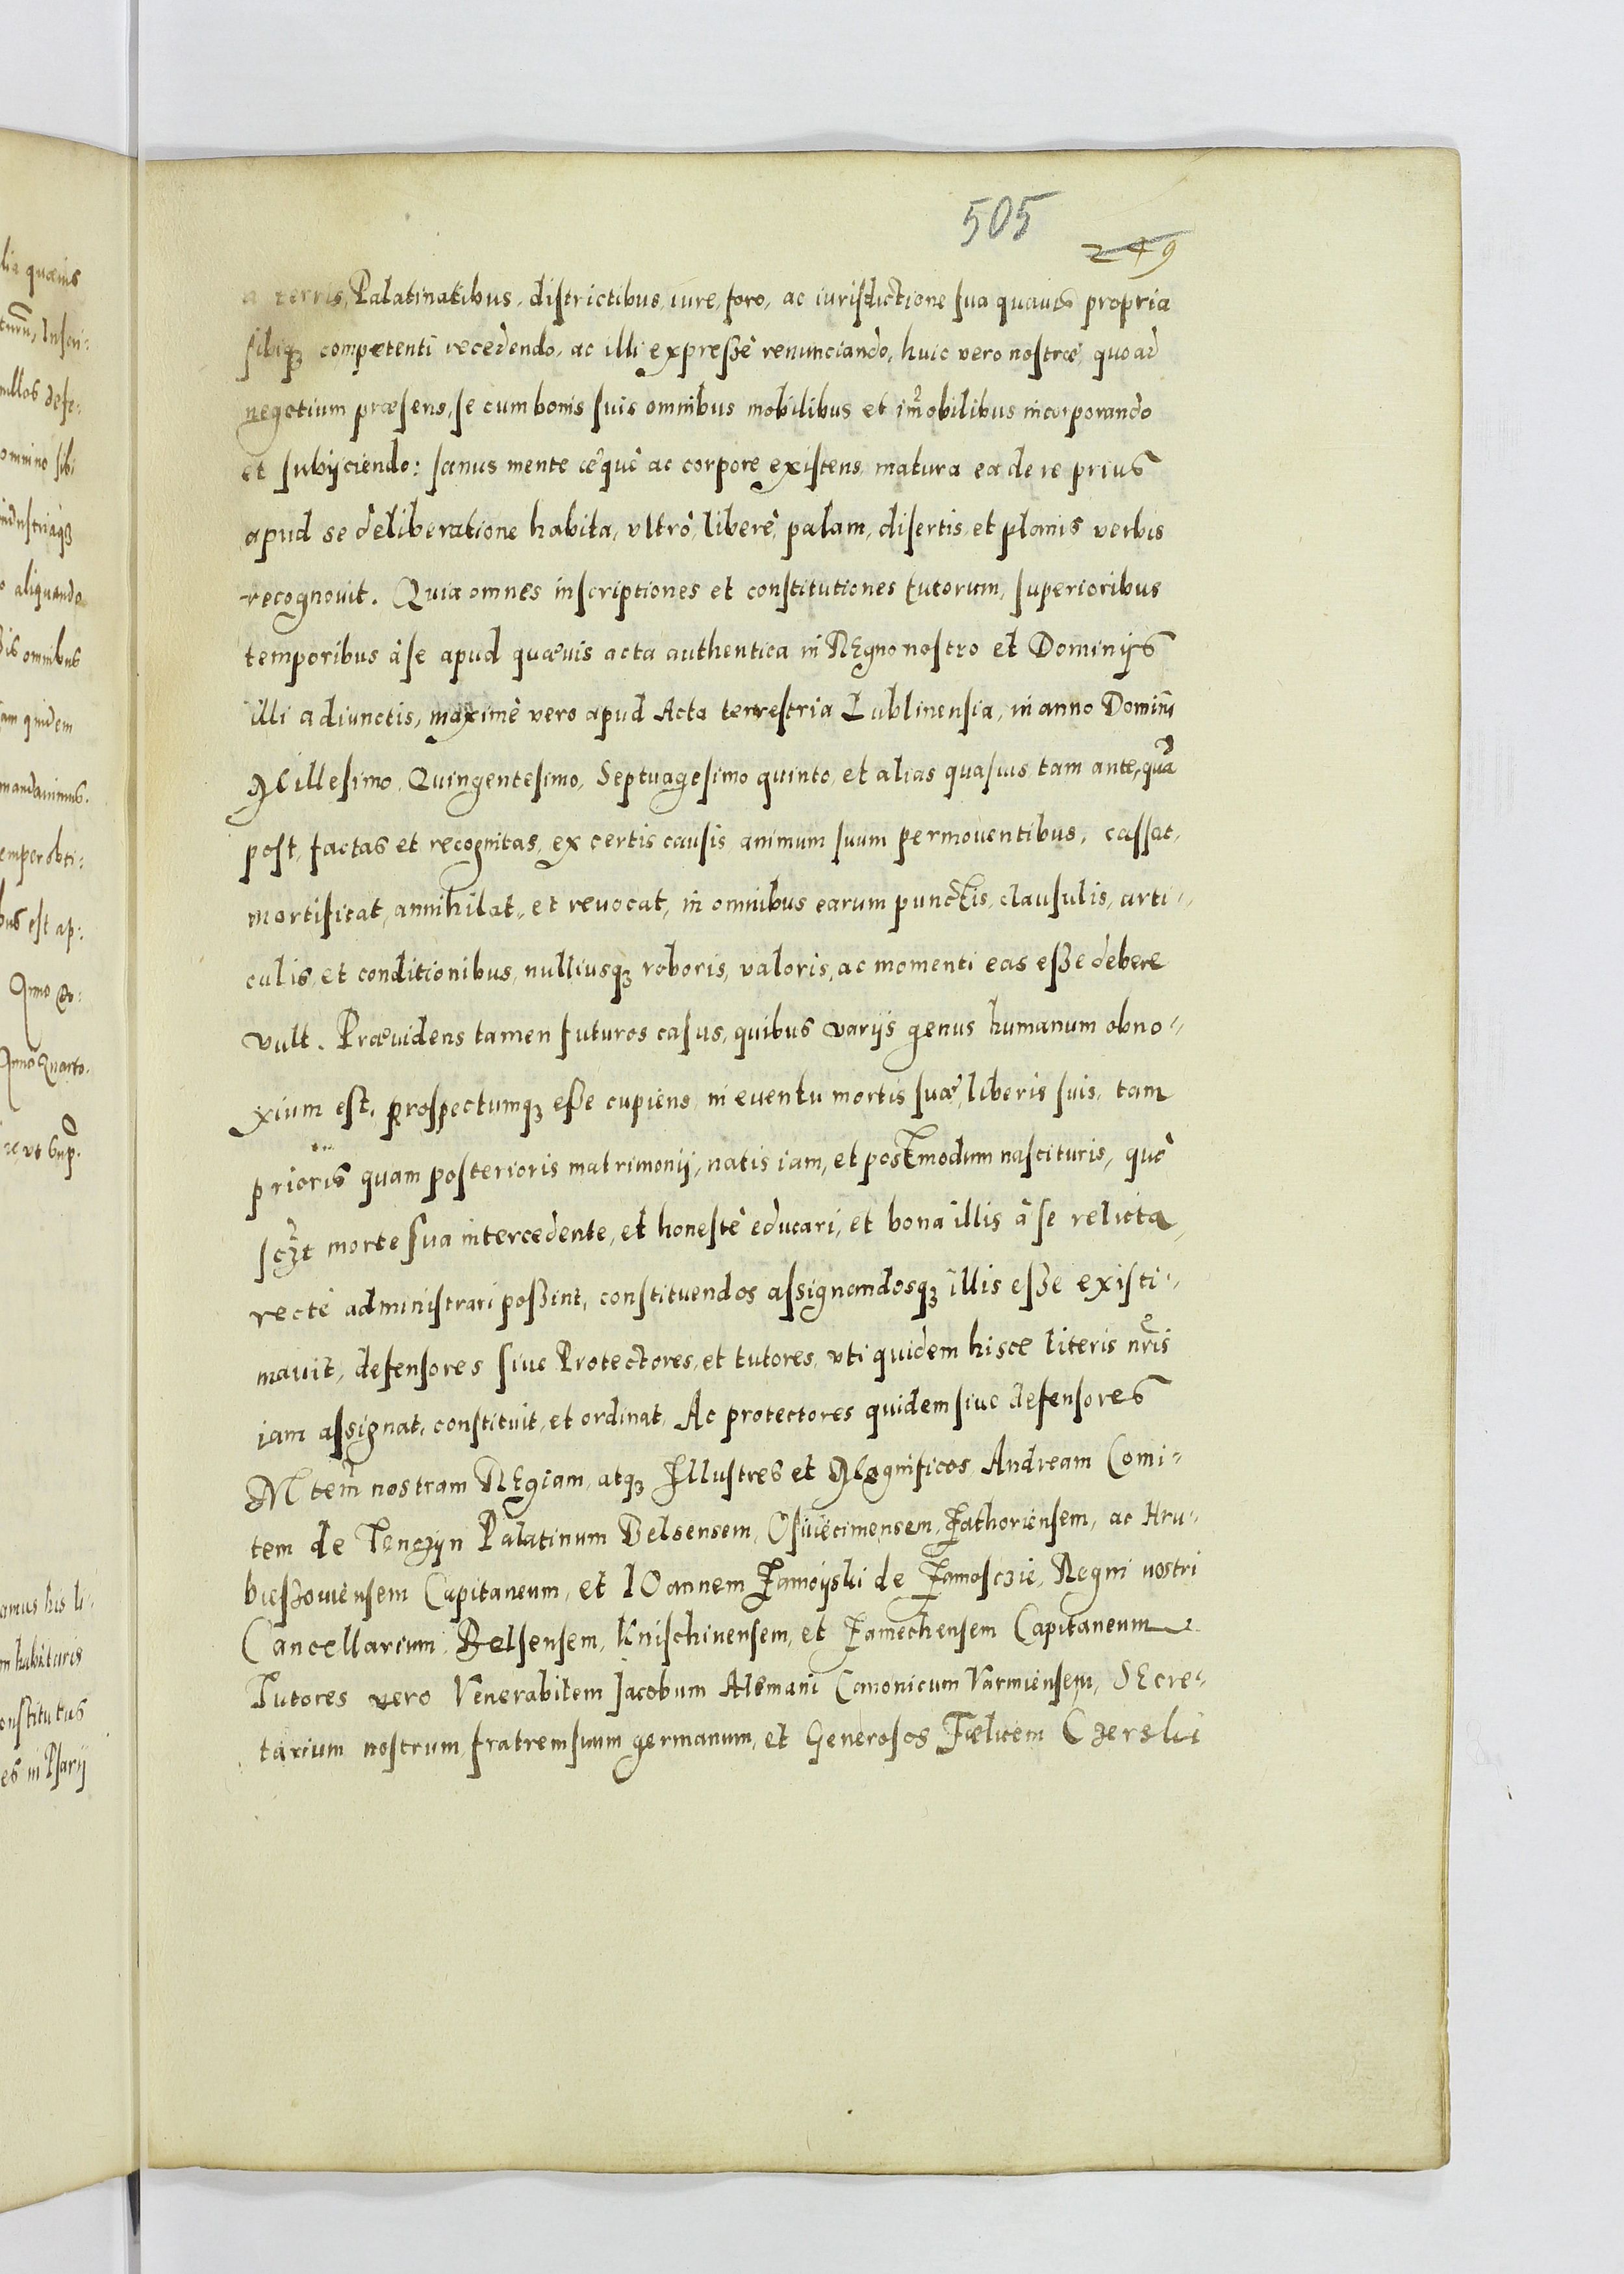 505
249
a terris, Palatinatibus, districtibus, iure, foro, ac iurisdictione sua quauis propria
sibiqꝫ competenti recedendo, ac illi expreßè renunciando, huic vero nostræ, quoad
negotium præsens, se cum bonis suis omnibus mobilibus et im̃obilibus incorporando
et subijciendo: sanus mente æquè ac corpore existens, matura ea de re prius
apud se deliberatione habita, vltrò, liberè, palam, disertis, et planis verbis
recognouit. Quia omnes inscriptiones et constitutiones tutorum, superioribus
temporibus à se apud quæuis acta authentica in REgno nostro et Dominijs
illi adiunctis, maximè vero apud Acta terrestria Lublinensia, in anno Domini
Millesimo, Quingentesimo, Septuagesimo quinto, et alias quasuis tam ante, quã
post, factas et recognitas, ex certis causis animum suum permouentibus, cassat,
mortificat, annihilat, et reuocat, in omnibus earum punctis, clausulis, arti-
culis, et conditionibus, nulliusqꝫ roboris, valoris, ac momenti eas eße debere
vult. Præuidens tamen futuros casus, quibus varijs genus humanum obno-
xium est, prospectumqꝫ eße cupiens, in euentu mortis suæ, liberis suis, tam
prioris quam posterioris matrimonij, natis iam, et postmodum nascituris, quò
scꝫt morte sua intercedente, et honestè educari, et bona illis à se relicta,
rectè administrari poßint, constituendos assignandosqꝫ illis eße existi-
mauit, defensores siue Protectores, et tutores, vti quidem hisce literis nr̃is
iam assignat, constituit, et ordinat. Ac protectores quidem siue defensores
Mtem̃ nostram REgiam, atqꝫ Illustres et Magnificos, Andream Comi-
tem de Tenczyn Palatinum Belsensem, Osuiecimensem, Zathoriensem, ac Hru-
bieszouiensem Capitaneum, et IOannem Zamoijski de Zamosczie, Regni nostri
Cancellarium, Belsensem, Knischinensem, et Zamechensem Capitaneum
Tutores vero Venerabilem Jacobum Alemani Canonicum Varmiensem, SEcre-
tarium nostrum, fratrem suum germanum, et Generosos Fælicem Czerski